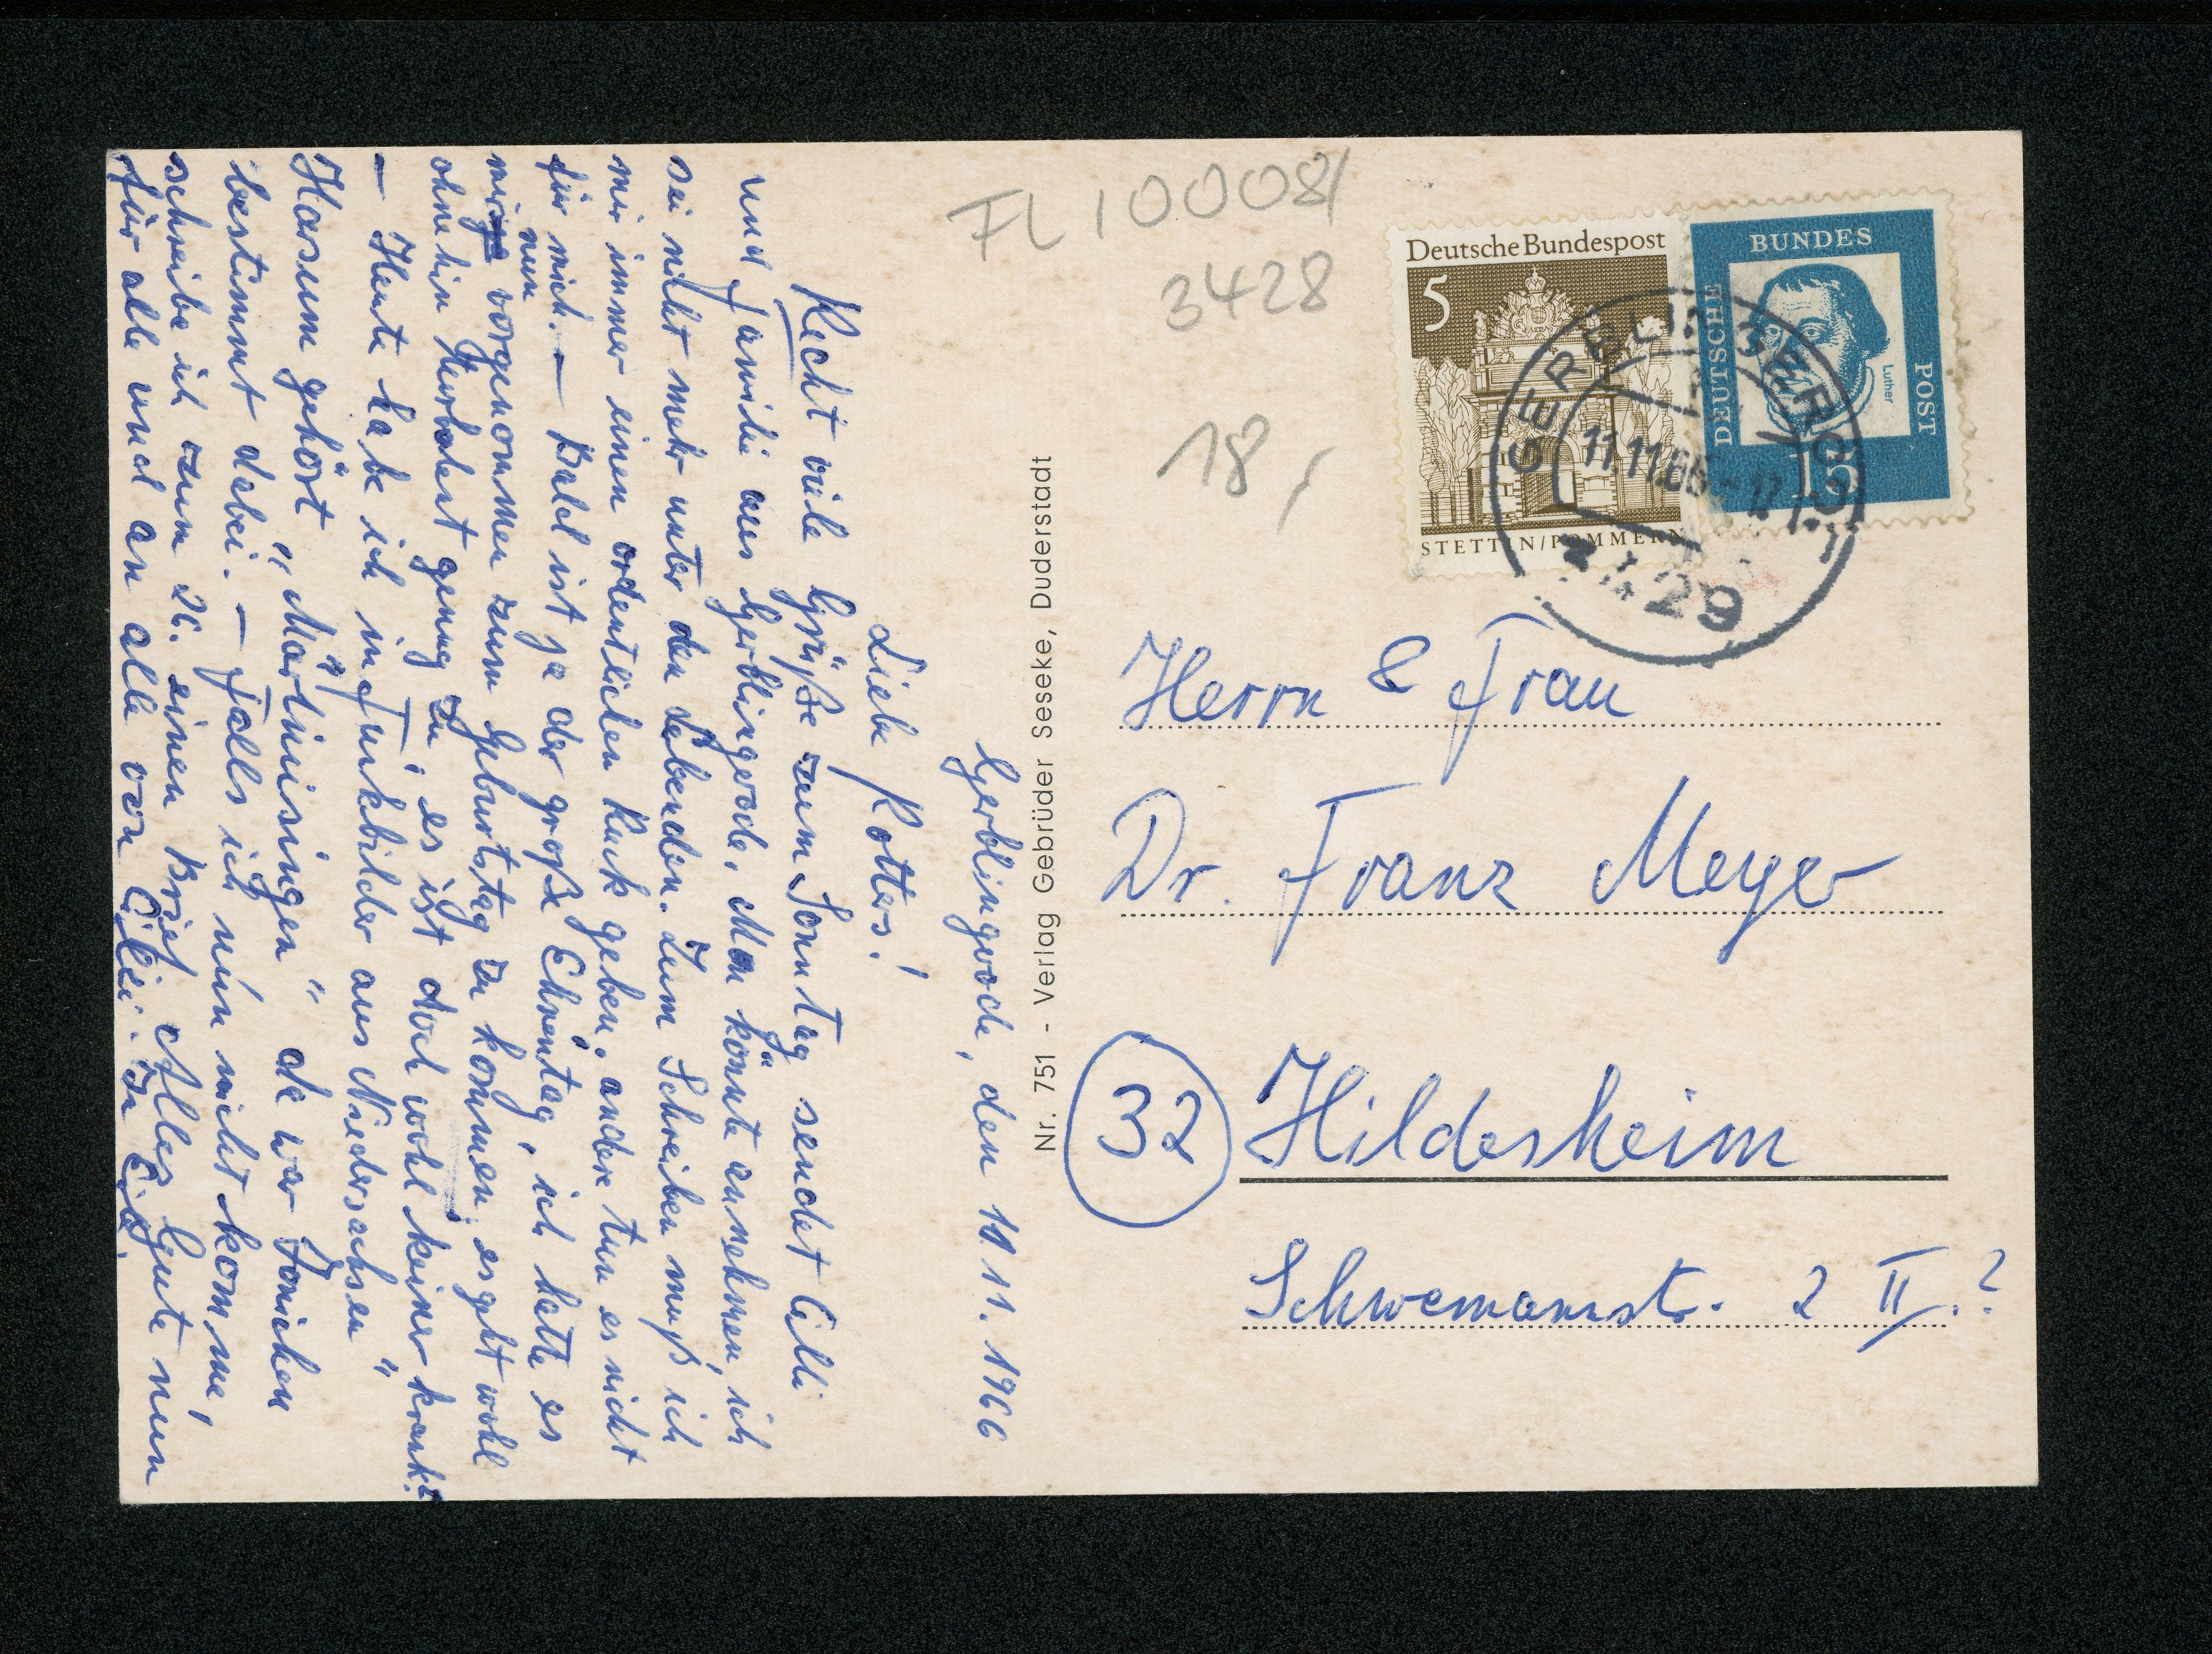 FL 10008/
3428
18,
Deutsche Bundespost
5
STETTIN/POMMERN
DEUTSCHE
BUNDES
POST
Luther
GERBLINGERODE
11.11.66
29
Nr. 751 - Verlag Gebrüder Seseke, Duderstadt
Herrn & Frau
Dr. Franz Meyer
32 Hildesheim
Schwemannstr. 2 II.?
Gerblingerode, den 10 11. 1966
Liebe Rottes!
Recht viele Grüße zum Sonntag sendet Cilli
und Familie aus Gerblingerode. Man könnte ja annehmen, ich
sei nicht mehr unter den Lebenden. Zum Schreiben muß ich
mir immer einen ordentlichen Ruck geben, andere tun es nicht
für mich. - Bald ist ja der große Ehrentag, ich hatte es
mir nun vorgenommen zum Geburtstag zu kommen, es geht wohl
ohnehin genug zu, es ist doch wohl keiner krank?
- Heute habe ich in Funkbilder aus Niedersachsen"
Harsum gehört "Martinisingen" da war
bestimmt dabei. - Falls ich nun nicht komme,
schreibe ich zum 26. einen Brief. Alles Gute nun
für alle und an alle von Cilli.